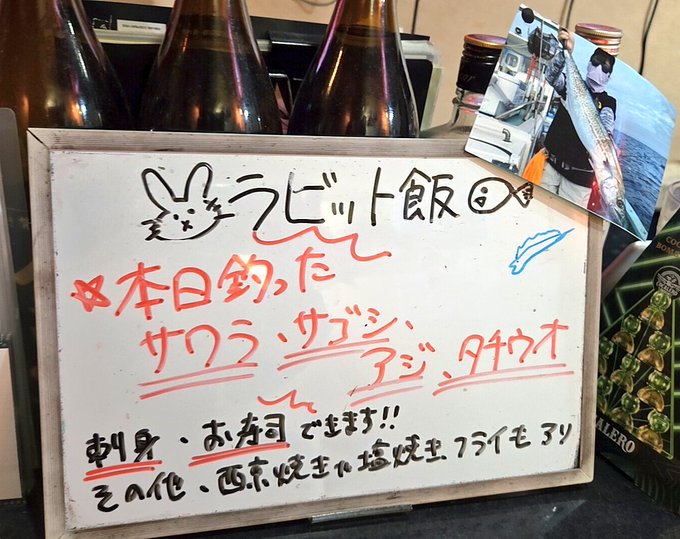 ラビット飯
☆本日釣った
サワラ、サゴシ、
アジ、タチウオ
刺身、お寿司できます!!
その他、西京焼きや塩焼き、フライもアリ
ALERO